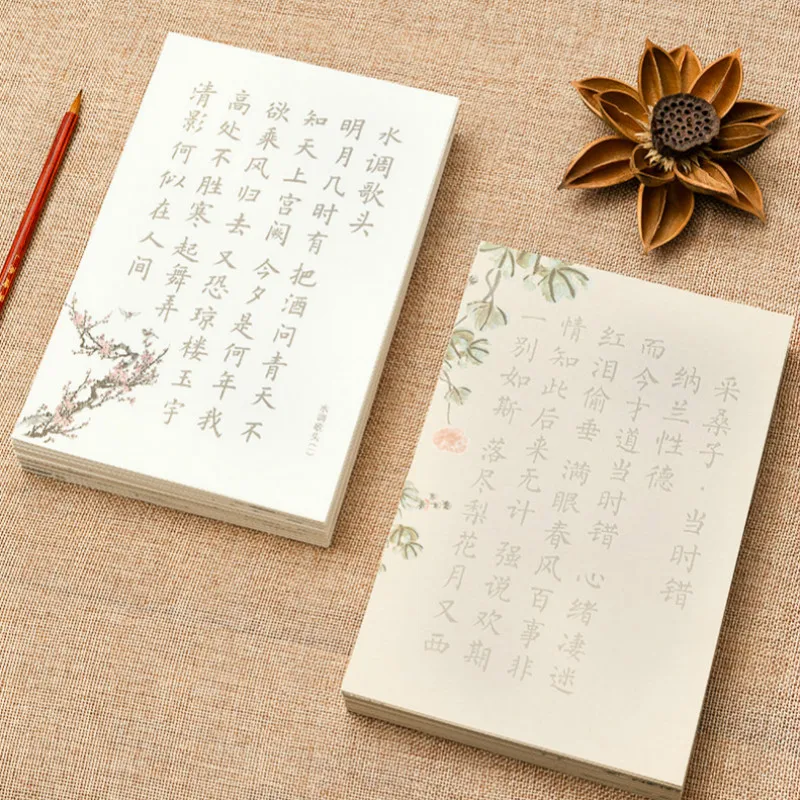 水调歌头
明月几时有 把酒问青天 不
知天上宫阙 今夕是何年 我
欲乘风归去 又恐琼楼玉宇
高处不胜寒 起舞弄
清影何似在人间
水调歌头(一)
采桑子·当时错
纳兰性德
而今才道当时错 心绪凄迷
红泪偷垂 满眼春风百事非
情知此后来无计 强说欢期
一别如斯 落尽梨花月又西